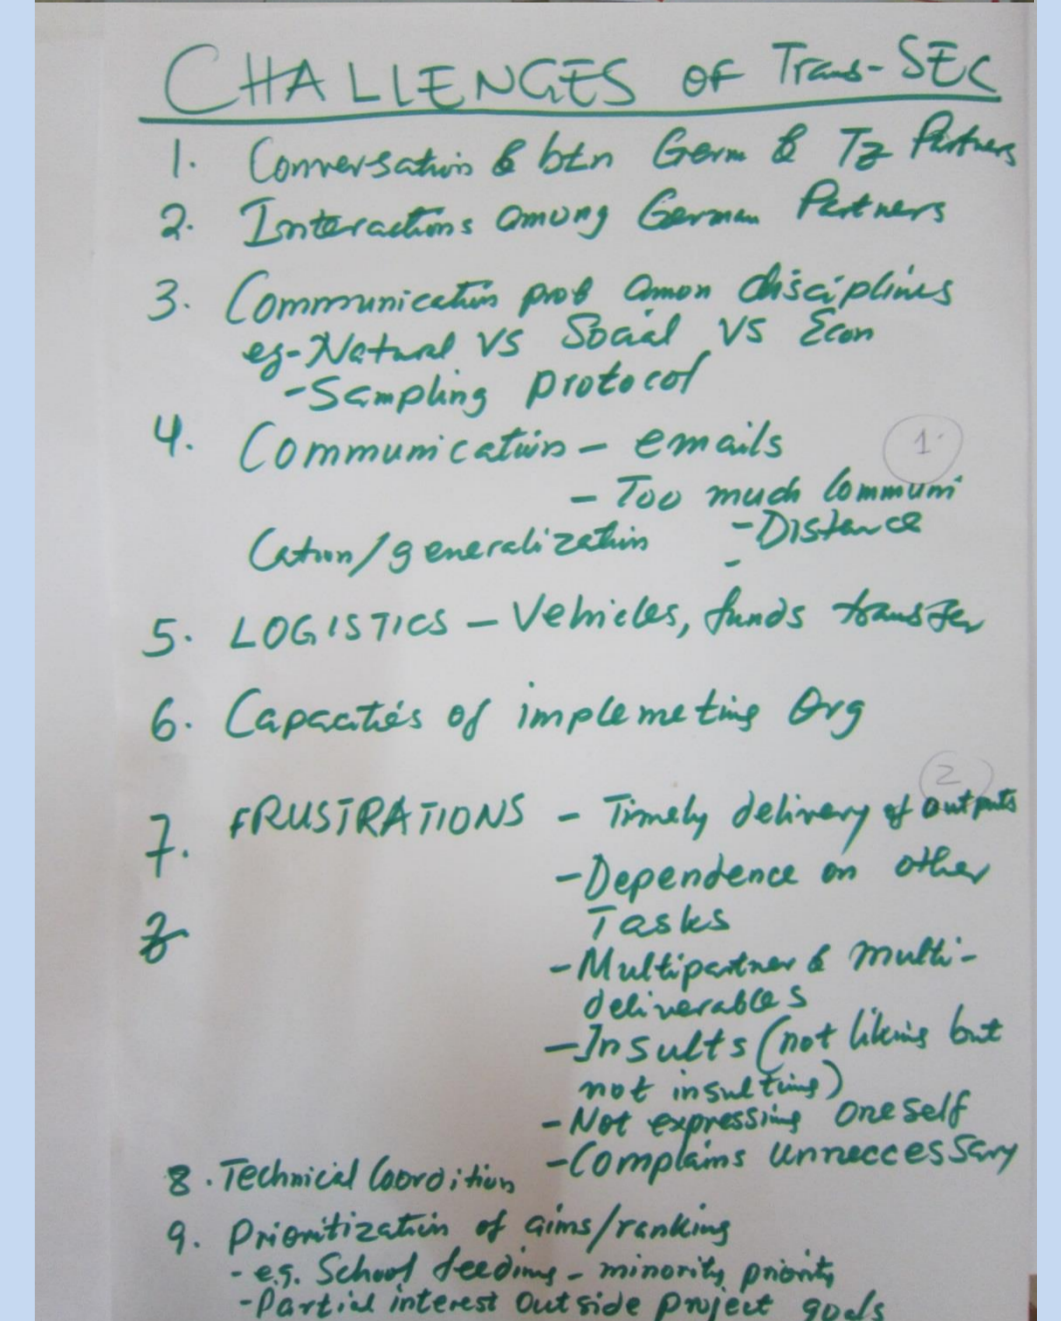 CHALLENGES OF Trans-SEC
1. Conversation & btn Germ & Tz Partners
2. Interactions among German Partners
3. Communication prob amon disciplines
eg-Natural VS Social VS Econ
-Sampling protocol
4. Communication - emails
1
- Too much Communi
cation/generalization - Distance
-
5. LOGISTICS - Vehicles, funds transfer
6. Capacities of implemeting Org
2
7. FRUSTRATIONS - Timely delivery of outputs
- Dependence on other
Tasks
- Multipartner & multi-
deliverables
- Insults (not liking but
not insulting)
- Not expressing oneself
- Complains unneccessary
8. Technical Coordition
9. Prioritization of aims/ranking
- e.g. School feeding - minority priority
- Partial interest outside project goals